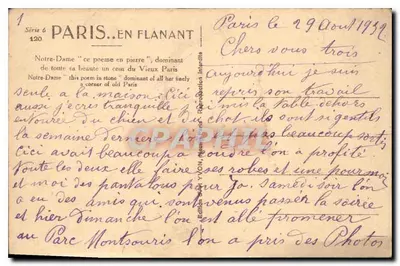 1
Série 6
120
PARIS.. EN FLANANT
Notre-Dame "ce poème en pierre", dominant
de toute sa beauté un coin du Vieux Paris
Notre-Dame "this poem in stone" dominant of all her
corner of old Paris
Paris le 29 Aout 1932
Chers vous trois
aujourd'hui je suis
repris son travail
seule a la maison, ici
aussi j'ecris tranquille j'ai mis la table dehors
entourée du chien et du chat, ils sont si gentils
la semaine dernière pas beaucoup sorti
ici avait beaucoup a coudre l'on a profité
toute les deux elle faire ses robes et une pour moi
et moi des pantalons pour Jo. samedi soir l'on
a eu des amis qui sont venus passer la soirée
et hier Dimanche l'on est allé promener
au Parc Montsouris l'on a pris des Photos